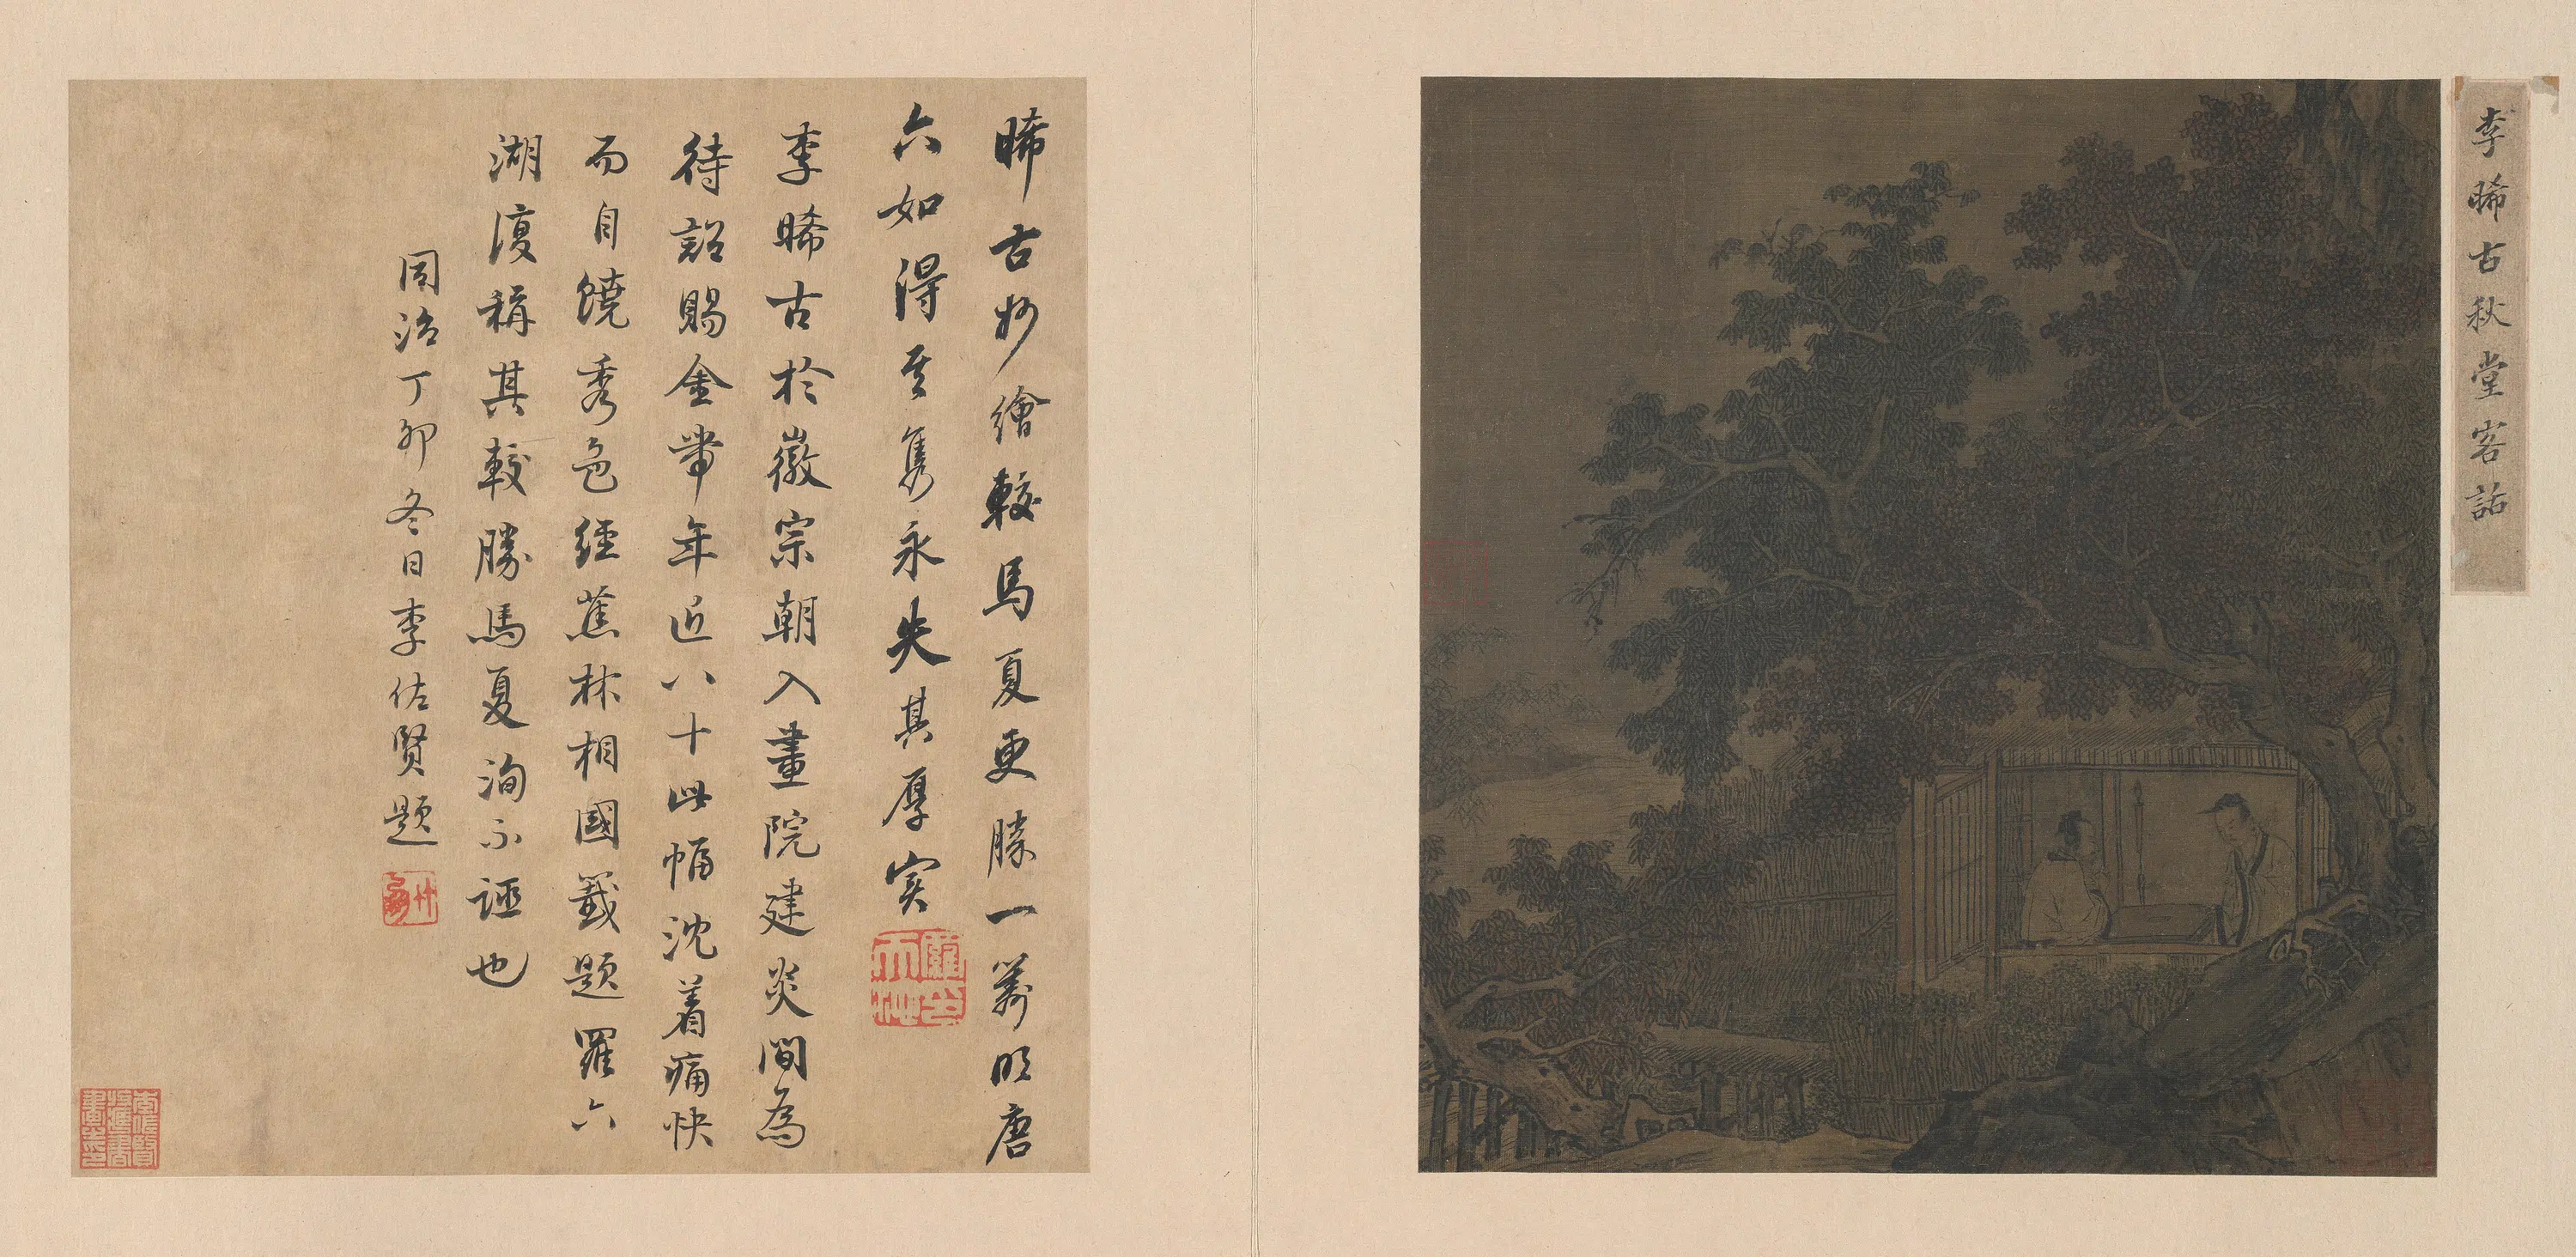 李晞古秋堂客話
晞古妙繪較馬夏更勝一籌明唐
六如得其雋永失其厚實
李晞古於徽宗朝入畫院建炎間為
待詔賜金帶年近八十此幅沈着痛快
而自饒秀色經蕉林相國籤題羅六
湖復稱其較勝馬夏洵不誣也
同治丁卯冬日李佐賢題
竹朋
李佐賢收藏書畫之印